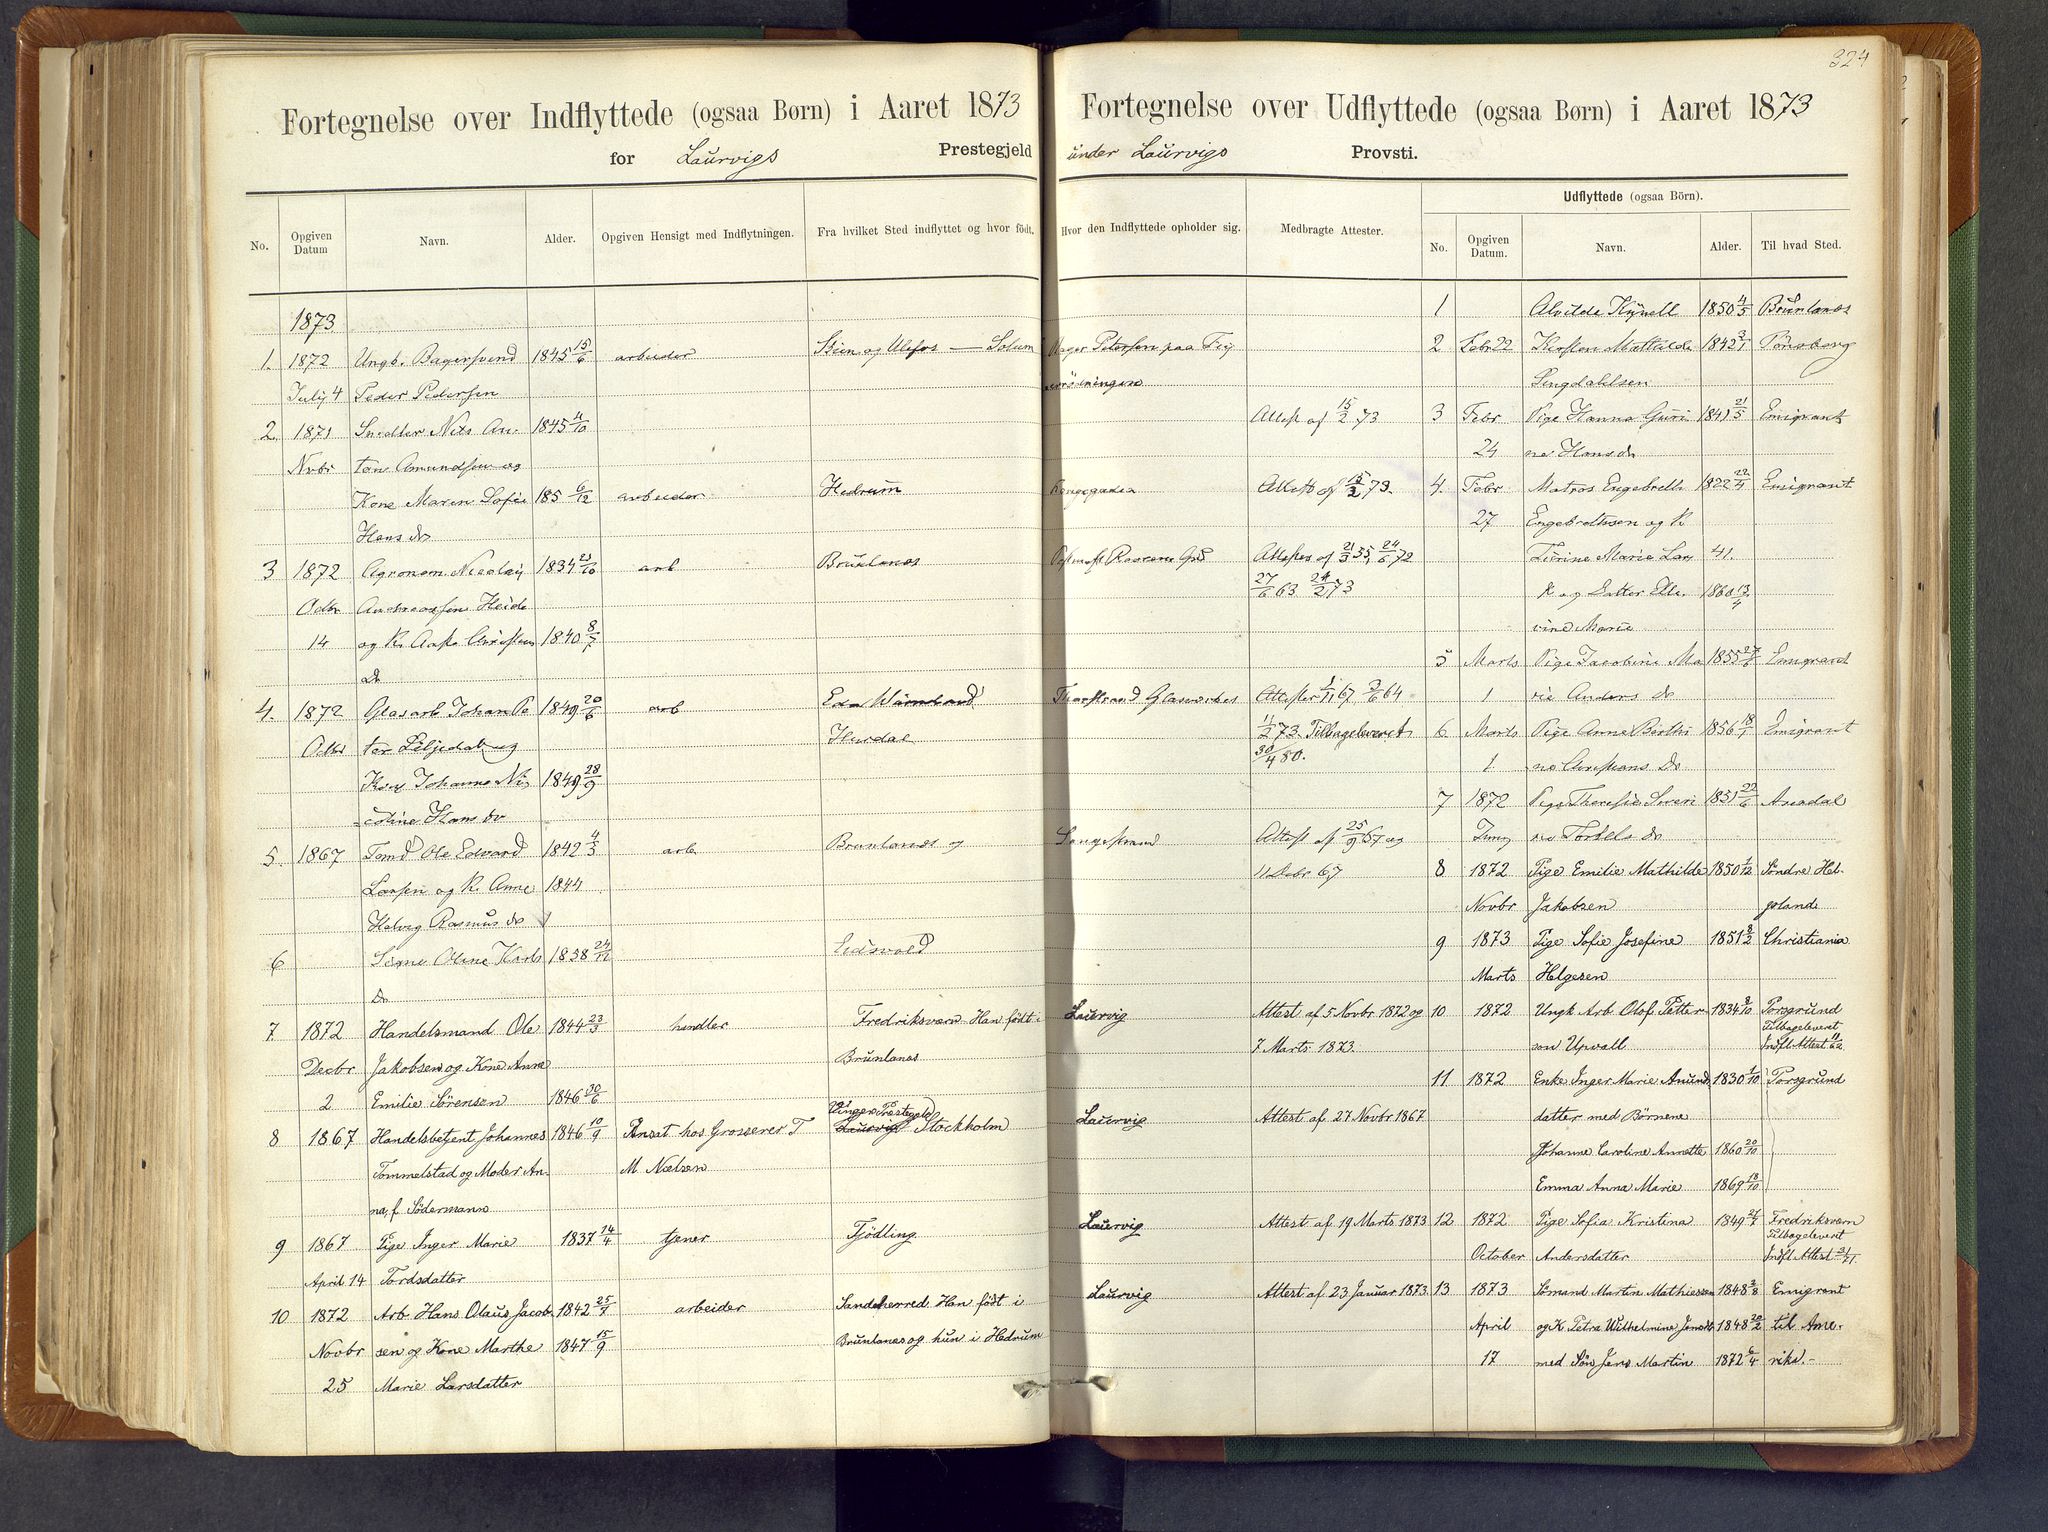 324
Fortegnelse over Indflyttede (ogsaa Børn) i Aaret 1873
for Laurvigs Prestegjeld
No. Opgiven Datum Navn. Alder. Opgiven Hensigt med Indflytningen. Fra hvilket Sted indflyttet og hvor født.
1873
1. 1872 Ungk. Bagersvend 1845 15/6 arbeider Skien og Ulefos — Solum
July 4 Peder Pedersen
2. 1871 Snedker Nils An- 1845 4/10
Novbr ton Amundsen og
Kone Maren Sofie 185 6/12 arbeider Hedrum
Hans dr
3 1872 Agronom Nicolay 1834 23/10 arb Brunlanes
Octbr Andreassen Heide
14 og K. Aase Christens 1840 8/7
dr
4. 1872 Glasarb Johan Pe 1849 20/6 arb Eda Wärmland
Octbr ter Liljedal og Hurdal
Kone Johanne Ni 1849 28/9
coline Hans dr
5. 1867 Tømd Ole Edvard 1842 4/3 arb Brunlanes og
Larsen og K. Anne 1844
Helvig Rasmus dr
6 Signe Oline Karls 1838 24/12 Eidsvold
dr
7. 1872 Handelsmand Ole 1844 23/3 handler Fredriksværn Han født i
Decbr Jakobsen og Kone Anne Brunlanes
2 Emilie Sörensen 1846 30/6
Vinger Prestegjeld
8 1867 Handelsbetjent Johannes 1846 10/9 Ansat hos Grosserer T Laurvig Stockholm
Tommelstad og Moder An- M Nielsen
na, f. Södermann
9 1867 Pige Inger Marie 1837 14/4 tjener Tjödling
April 14 Tordsdatter
10 1872 Arb Hans Olaus Jacob 1842 25/7 arbeider Sandeherred Han født i
Novbr sen og Kone Marthe 1847 15/9 Brunlanes og hun i Hedrum
25 Marie Larsdatter
Fortegnelse over Udflyttede (ogsaa Børn) i Aaret 1873
under Laurvigs Provsti.
Udflyttede (ogsaa Börn).
Hvor den Indflyttede opholder sig. Medbragte Attester. No. Opgiven Datum. Navn. Alder. Til hvad Sted.
1 Alvilde Kynell 1850 4/5 Brunlanes
Bager Petersen paa 2 Febr 22 Kirsten Mathilde 1842 3/1 Tönsberg
Lingdahlsen
Attest af 15/2 73 3 Febr Pige Hanna Guri 1841 21/5 Emigrant
24 ne Hans dr
Kongegaden Attest af 15/2 73. 4. Febr Matros Engebreth 1822 22/4 Emigrant
27 Engebrethsen og K
Attester af 21/3 35, 24/6 72 Marie Lars 41.
27/6 63 24/2 73 K og Datter Elle 1860 13/4
vine Marie
5 Marts Pige Jacobine Ma 1855 Emigrant
1 rie Anders dr
Glasverket Attester 1/11 67 3/6 64
11/2 73. Tilbageleveret 6 Marts Pige Anne Berthi 1856 18/1 Emigrant
30/4 80. 1. ne Christians dr
7 1872 Pige Theresie Sever 1851 22/6 Arendal
Langestrand Attest af 25/9 67 og Juny ne Torkels dr
4 Debr 67 8 1872 Pige Emilie Mathilde 1850 1/12 Söndre Hel-
Novbr Jakobsen goland
9 1873 Pige Sofie Josefine 1851 8/2 Christiania
Marts Helgesen
Laurvig Attest af 5 Novbr 1872 og 10 1872 Ungk Arb Olof Petter 1834 8/10 Porsgrund
Tilbageleveret
7 Marts 1873. son Upvall Indfl. Attest
11 1872 Enke Inger Marie Amund 1830 1/10 Porsgrund
Laurvig Attest af 27 Novbr 1867 datter med Börnene
Johanne Caroline Annette 1860 20/10
Emma Anna Marie 1869 18/10
Laurvig Attest af 19 Marts 1873 12 1872 Pige Sofia Kristina 1849 21/7 Fredriksværn
Tilbageleveret
October Andersdatter Indfl Attest
Laurvig Attest af 23 Januar 1873. 13 1873 Sømand Martin Mathiesen 1848 3/8 Emigrant
April og K Petra Wilhelmine Jonsdr 1848 20/2 til Ame-
17 med Sön Jens Martin 1872 6/4 rika.-